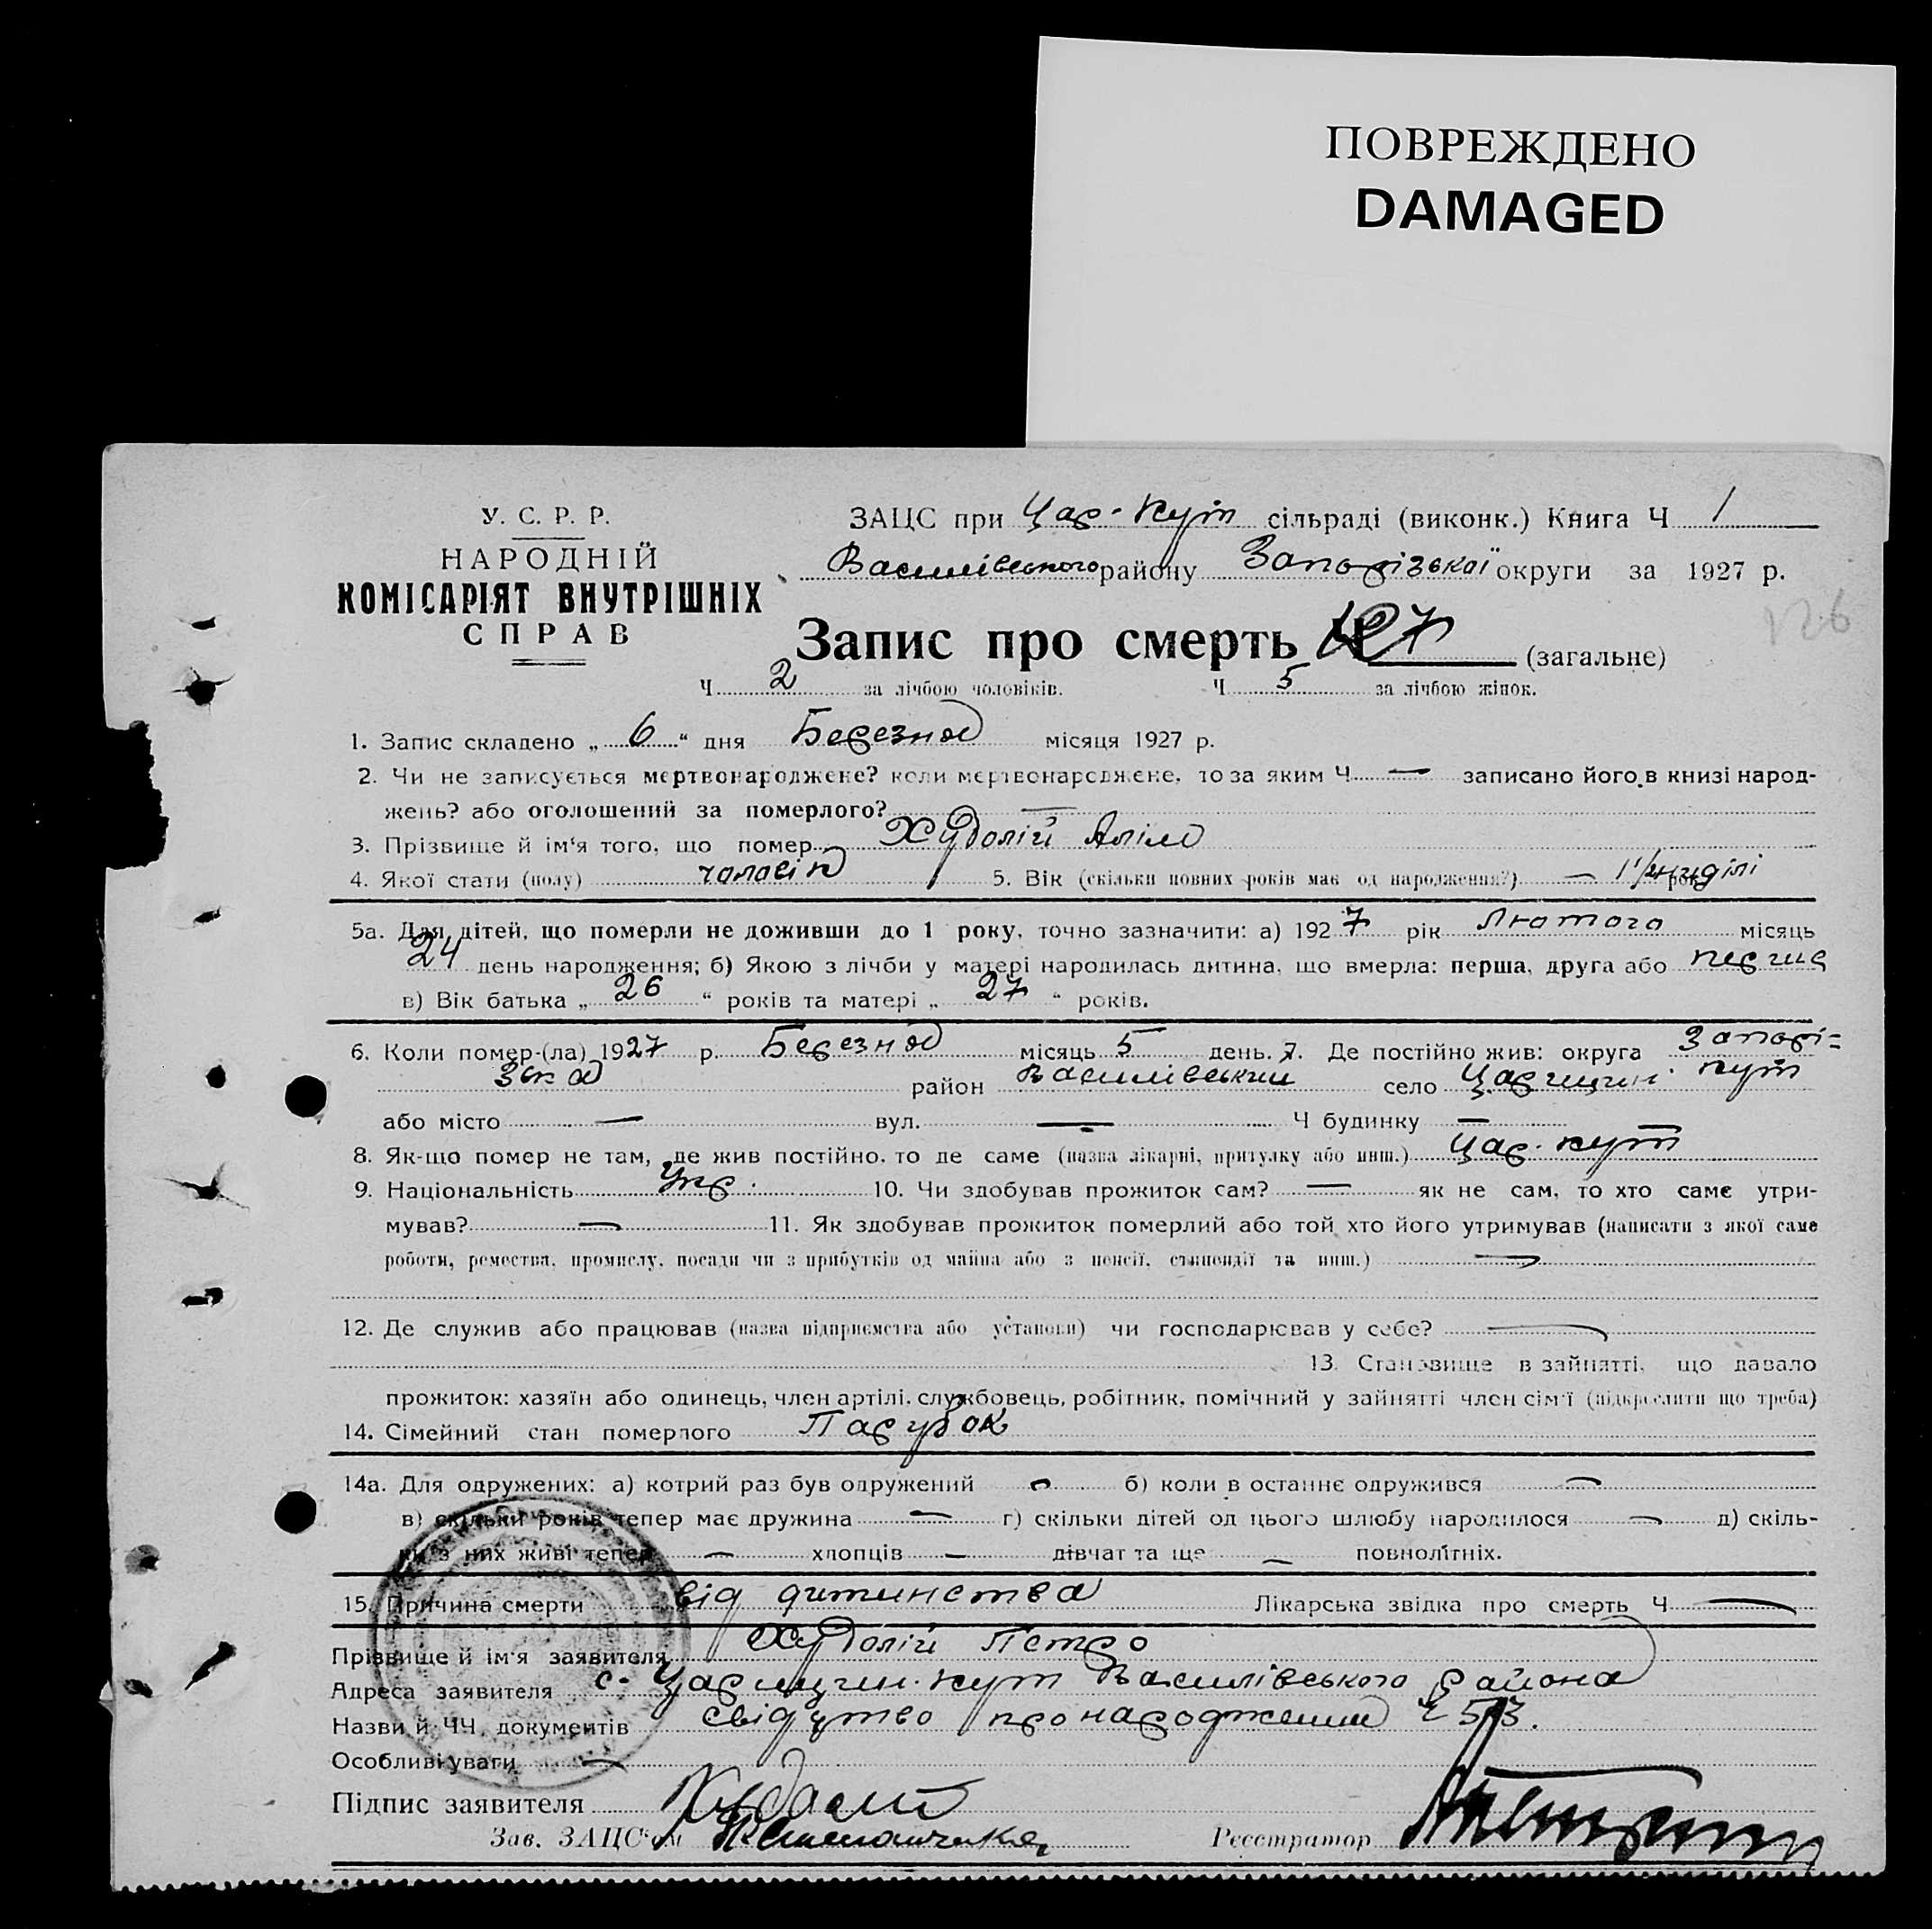 ПОВРЕЖДЕНО
DAMAGED
У. С. Р. Р.
НАРОДНІЙ
КОМІСАРІЯТ ВНУТРІШНІХ
СПРАВ
ЗАЦС при Цар-Кут сільраді (виконк.) Книга Ч 1
Василівського району Запорізької округи за 1927 р.
126
Запис про смерть 7 (загальне)
Ч 2 за лічбою чоловіків. Ч 5 за лічбою жінок.
1. Запис складено „ 6 “ дня Березня місяця 1927 р.
2. Чи не записується мертвонароджене? коли мертвонароджене, то за яким Ч — записано його в книзі народ-
жень? або оголошений за померлого? —
3. Прізвище й ім'я того, що помер Худолій Алім
4. Якої стати (полу) чоловік 5. Вік (скільки повних років має од народження?) — 1 1/2 ниділі рок
5а. Для дітей, що померли не доживши до 1 року, точно зазначити: а) 1927 рік Лютого місяць
24 день народження; б) Якою з лічби у матері народилась дитина, що вмерла: перша, друга або перша
в) Вік батька „ 26 “ років та матері „ 27 “ років.
6. Коли помер-(ла) 1927 р. Березня місяць 5 день. 7. Де постійно жив: округа Запорі=
зька район Василівський село Царицин-Кут
або місто — вул. — Ч будинку —
8. Як-що помер не там, де жив постійно, то де саме (назва лікарні, притулку або инш.) Цар-Кут
9. Національність Укр. 10. Чи здобував прожиток сам? — як не сам, то хто саме утри-
мував? — 11. Як здобував прожиток померлий або той хто його утримував (написати з якої саме
роботи, ремества, промислу, посади чи з прибутків од майна або з пенсії, стипендії та инш.) —
12. Де служив або працював (назва підприємства або установи) чи господарював у себе? —
13. Становище в зайнятті, що давало
прожиток: хазяїн або одинець, член артілі, службовець, робітник, помічний у зайнятті член сім'ї (підкреслити що треба)
14. Сімейний стан померлого Парубок
14а. Для одружених: а) котрий раз був одружений — б) коли в останнє одружився —
в) скільки років тепер має дружина — г) скільки дітей од цього шлюбу народилося — д) скіль-
ки з них живі тепер — хлопців — дівчат та ще — повнолітніх.
15. Причина смерти від дитинства Лікарська звідка про смерть Ч —
Прізвище й ім'я заявителя Худолій Петро
Адреса заявителя с. Царицин-Кут Василівського района
Назви й ЧЧ документів свідуцтво про народження Ч 53.
Особливі уваги —
Підпис заявителя Худолій
Зав. ЗАЦС'ом Реєстратор